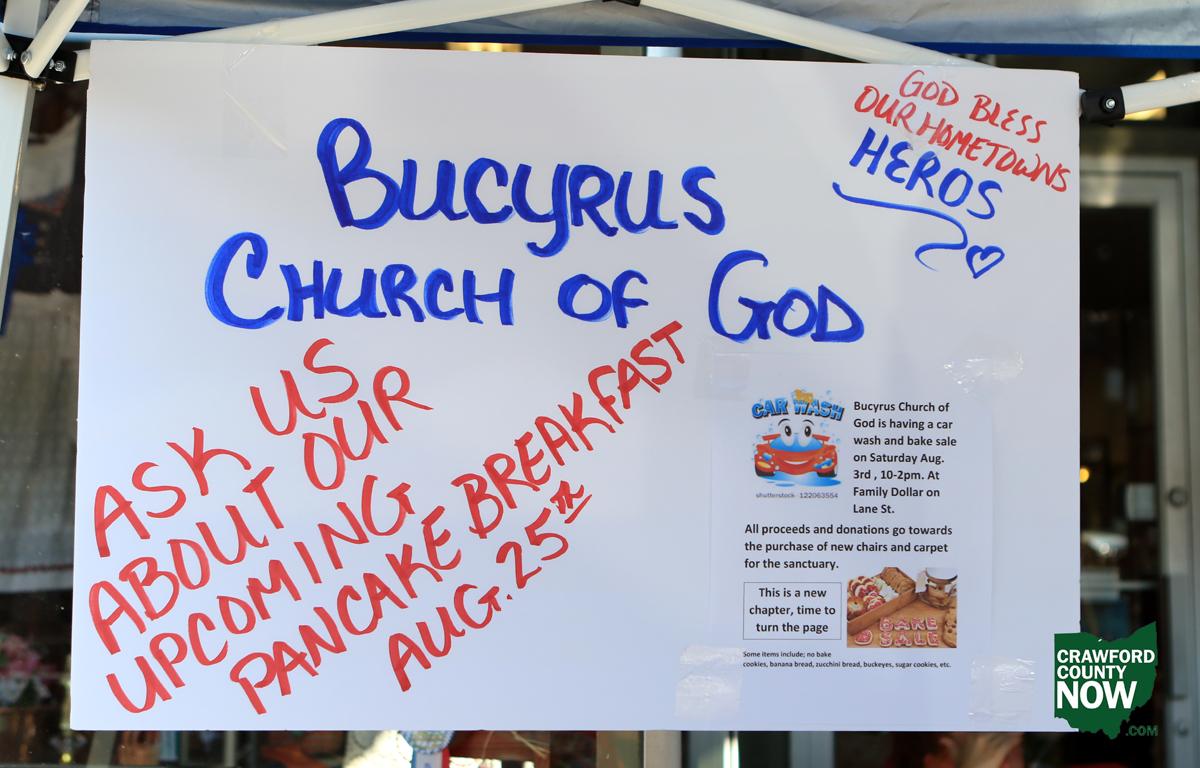 BUCYRUS
CHURCH OF GOD
GOD BLESS
OUR HOMETOWNS
HEROS
ASK US
ABOUT OUR
UPCOMING
PANCAKE BREAKFAST
AUG. 25TH
CAR WASH
shutterstock · 122063554
Bucyrus Church of
God is having a car
wash and bake sale
on Saturday Aug.
3rd , 10-2pm. At
Family Dollar on
Lane St.
All proceeds and donations go towards
the purchase of new chairs and carpet
for the sanctuary.
This is a new
chapter, time to
turn the page
BAKE
SALE
Some items include; no bake
cookies, banana bread, zucchini bread, buckeyes, sugar cookies, etc.
CRAWFORD
COUNTY
NOW
.COM